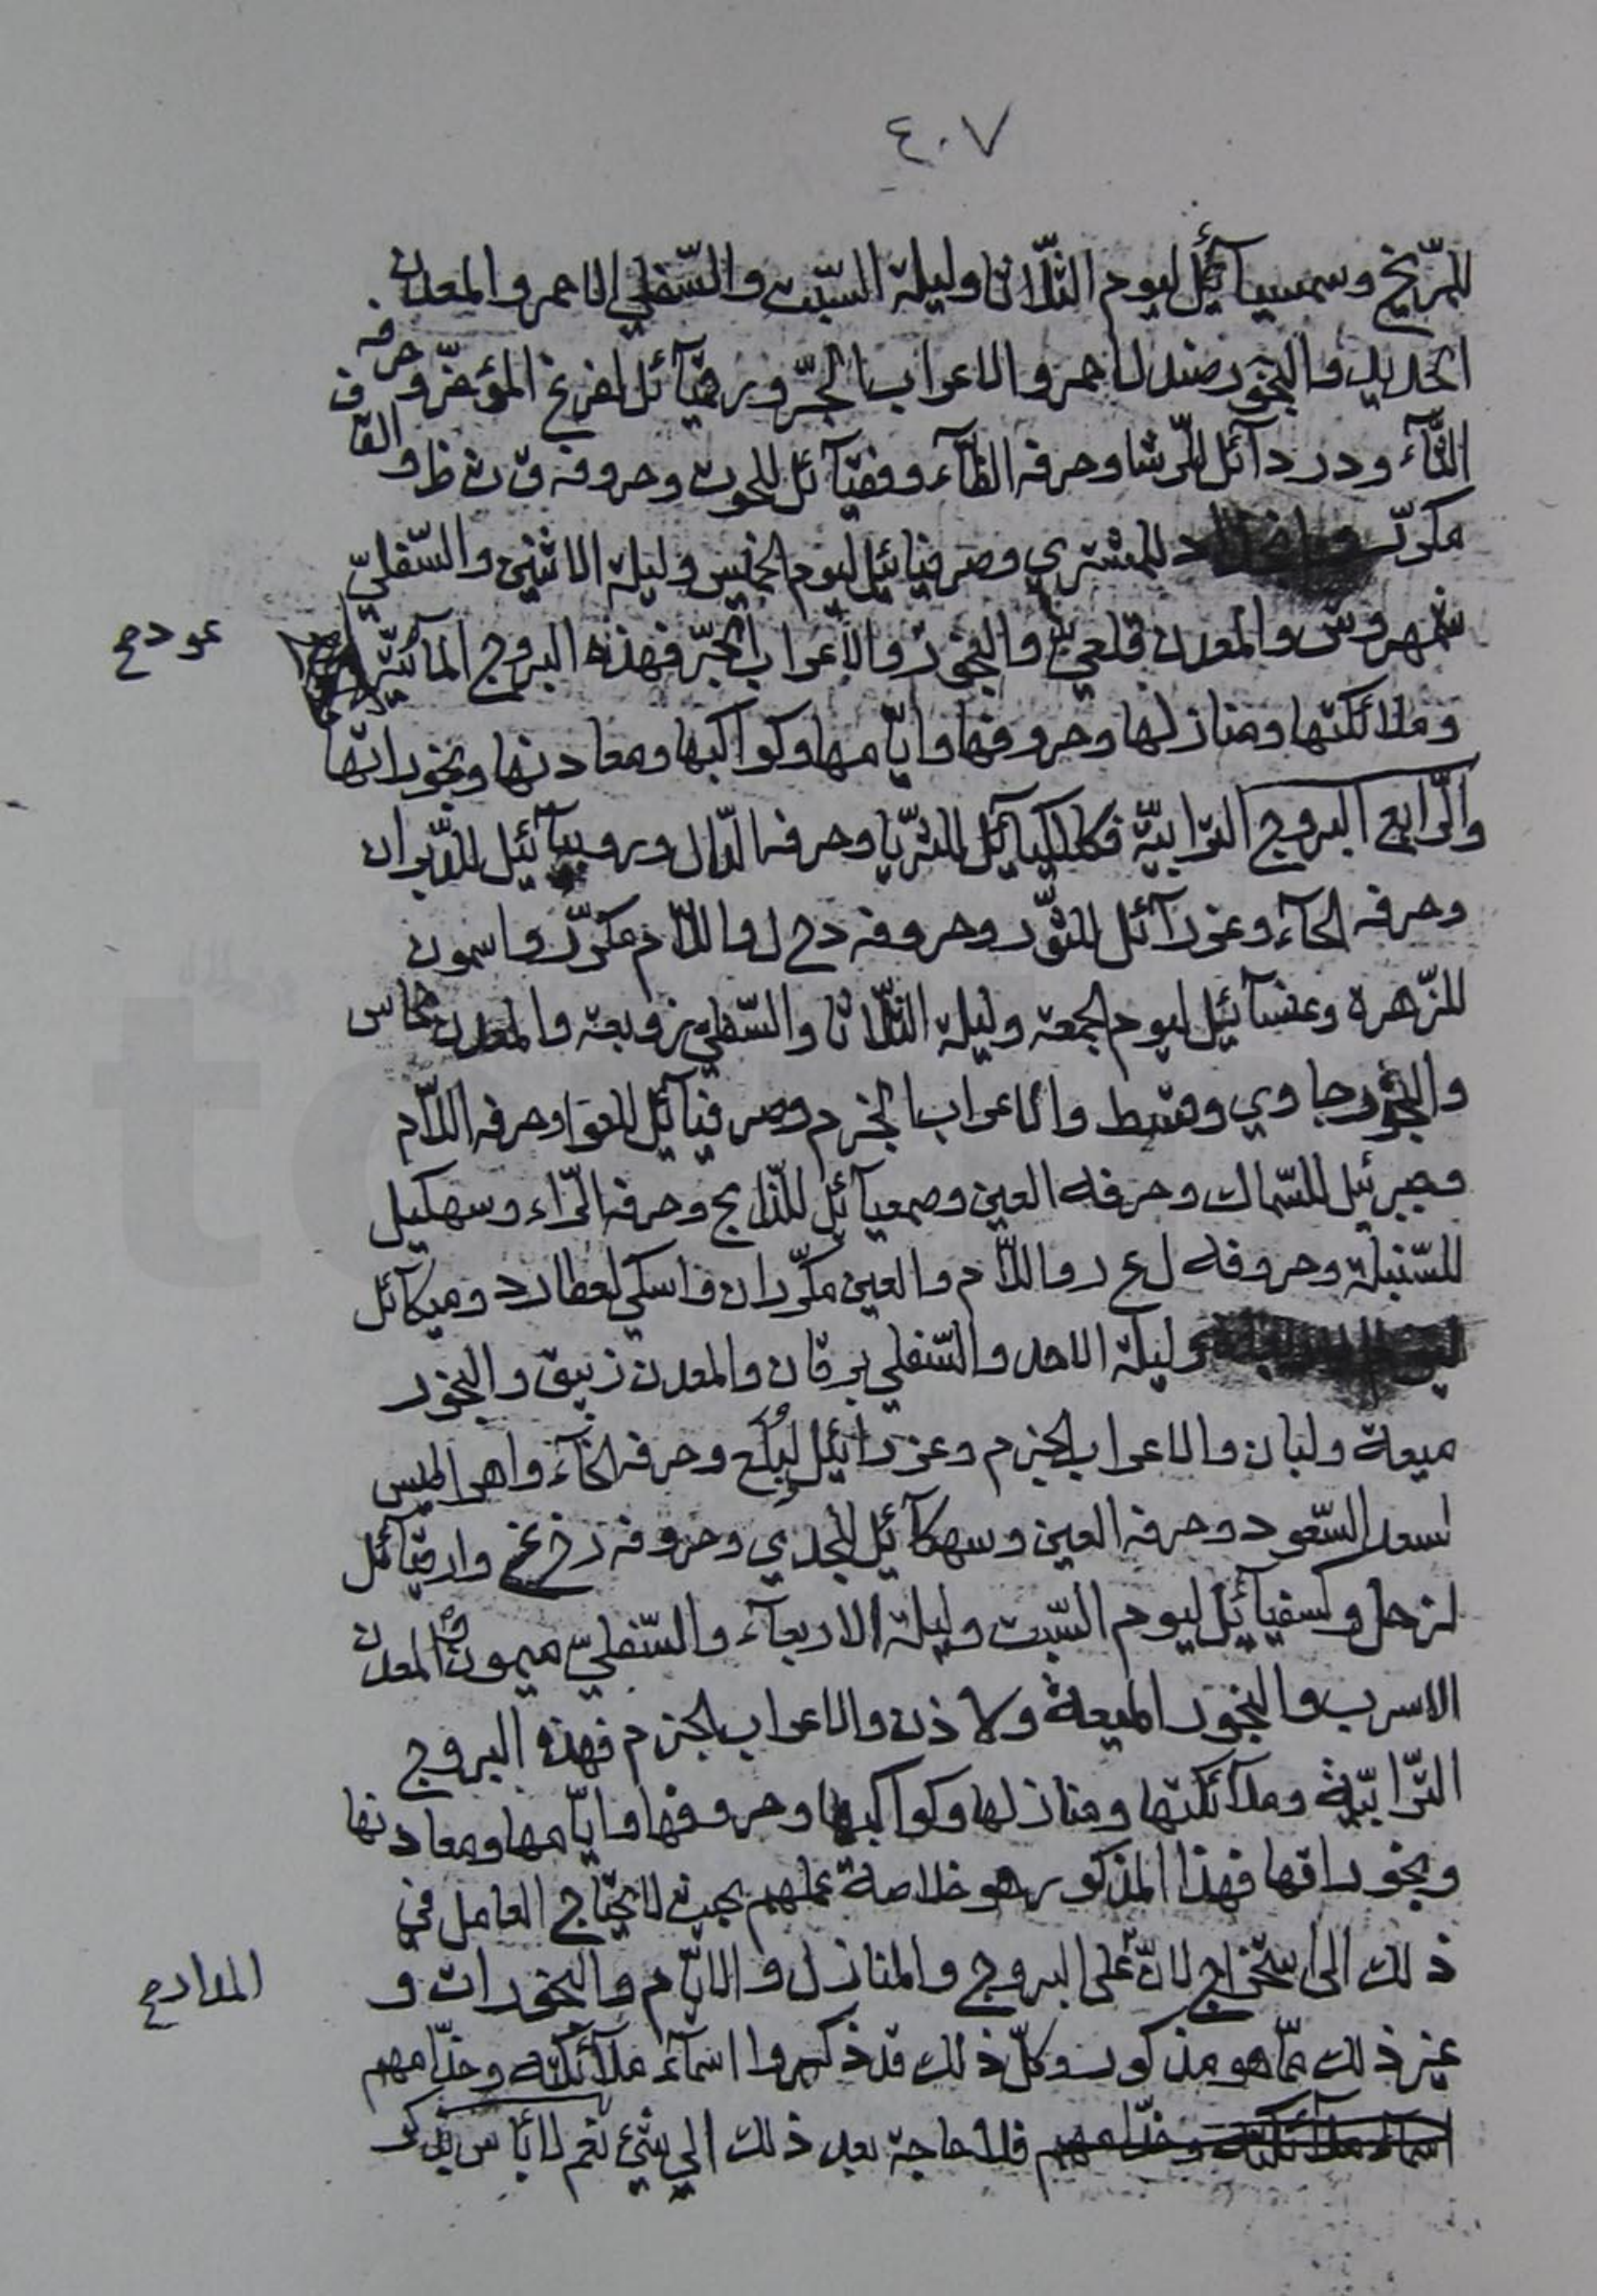 ٤٠٧
للمّريخ وسمسيآئيل ليوم الثّلاثا وليلة السّبت والسّفلي الاحمر والمعدن
الحديد والبخور صندل احمر والاعراب بالجّر ورفيآئل لفرغ المؤخّر وحرفه
الثّآء ودردآئل للّرشا وحرفه الظآء وفقيآئل للحوت وحروفه ق ث ظ والقاف
مكرّر للمشتري وصرفيائيل ليوم الخميس وليلة الاثنين والسّفليّ
شمهروش والمعدن قلعي والبخور والاعراب بالجّر فهذه البروج المآئيّة
عودح
وملائكتها ومنازلها وحروفها وايّامها وكواكبها ومعادنها وبخوراتها
والّرابع البروج التّرابيّة فكلكيآئل للثّريّا وحرفه الدّال وروبيآئيل للدّبران
وحرفه الحآء وعزرآئل للثّور وحروفه دح ل واللّام مكرّر واسمون
للزّهرة وعنيآئيل ليوم الجمعة وليلة الثّلاثا والسّفلي زوبعة والمعدن نحاس
والبخور جاوي وقسط والاعراب الجزم وصرفيآئل للعوّا وحرفه اللّام
وجبرئيل للسّماك وحرفه العين وصمعيآئل للذّابح وحرفه الّراء وسهكيل
للسّنبلة وحروفه ل ع ر واللّام والعين مكرّران واسكي لعطارد وميكآئل
وليلة الاحد والسّفلي برقان والمعدن زيبق والبخور
ميعة ولبان والاعراب الجزم وعزرائيل لبُلَع وحرفه الخآء واهرالميس
لسعد السّعود وحرفه الغين وسهكآئيل للجدي وحروفه رخ غ وارقيآئل
لزحل وكسفيآئيل ليوم السّبت وليلة الاربعآء والسّفليّ ميمون والمعدن
الاسرب والبخور الميعة ولاذن والاعراب الجزم فهذه البروج
التّرابيّة وملآئكتها ومنازلها وكواكبها وحروفها وايّامها ومعادنها
وبخوراتها فهذا المذكور هو خلاصة عملهم بحيث لا يحتاج العامل في
ذلك الى استخراج لانّ على البروج والمنازل والايّام والبخورات و
المدادح
غير ذلك ممّا هو مذكور وكلّ ذلك قد ذكروا اسمآء ملآئكته وخدّامهم
اسمآء ملآئكته وخدّامهم فلا حاجة بعد ذلك الي شئ نعم لا بأس بذكر